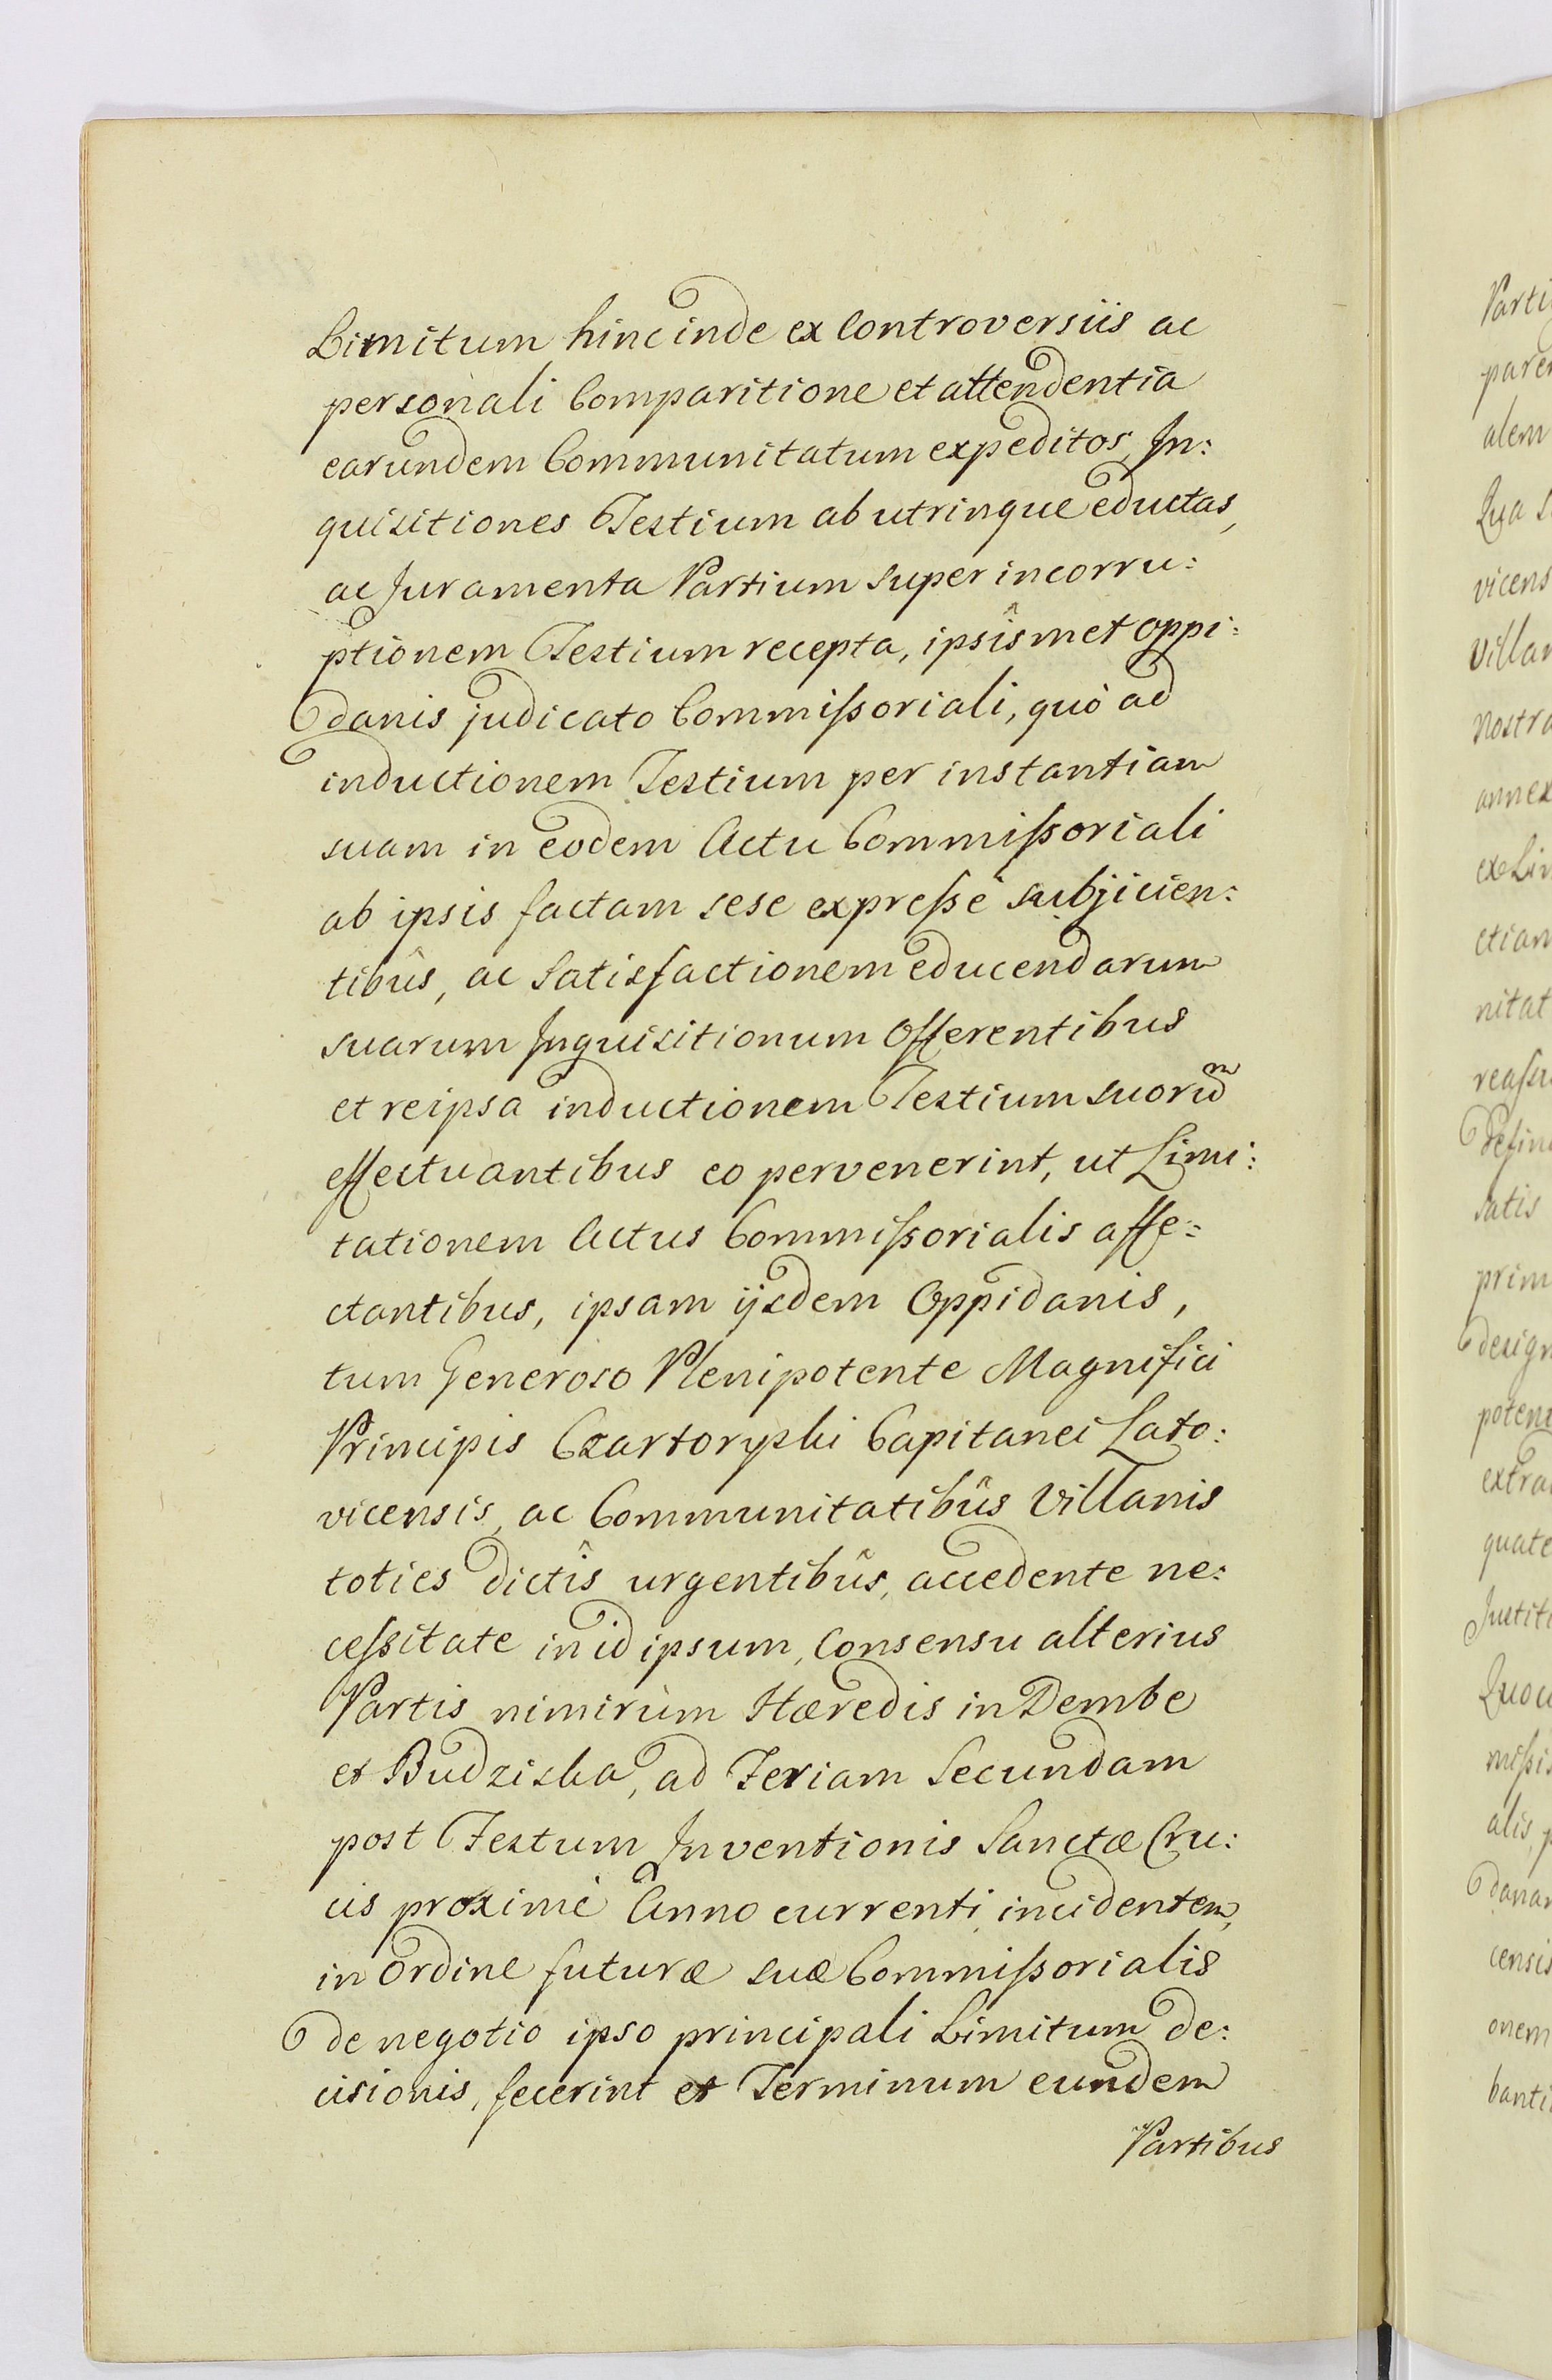 Limitum hinc inde ex Controversiis ac
personali Comparitione et attendentia
earundem Communitatum expeditos, In:
quisitiones Testium ab utrinque eductas,
ac Juramenta Partium super incorru:
ptionem Testium recepta, ipsîsmet Oppi:
danis judicato Commißoriali, quò ad
inductionem Testium per instantiam
suam in eodem Actu Commißoriali
ab ipsis factam sese expreßè subjicien:
tibûs, ac Satisfactionem educendarum
suarum Inquisitionum Offerentibus
et reipsa inductionem Testium suorũm
effectuantibus eo pervenerint, ut Limi:
tationem Actus Commißorialis affe:
ctantibus, ipsam ijsdem Oppidanis,
tum Generoso Plenipotente Magnifici
Principis Czartoryski Capitanei Lato:
vicensis, ac Communitatibûs Villanis
toties dictîs urgentibûs, accedente ne:
ceßitate in id ipsum, Consensu alterius
Partis nimirùm Hæredis in Dembe
et Budziska, ad Feriam Secundam
post Festum Inventionis Sanctæ Cru:
cis proximè Anno currenti incidentem,
in Ordine futuræ suæ Commißorialis
de negotio ipso principali Limitum de:
cisionis, fecerint et Terminum eundem
Partibus